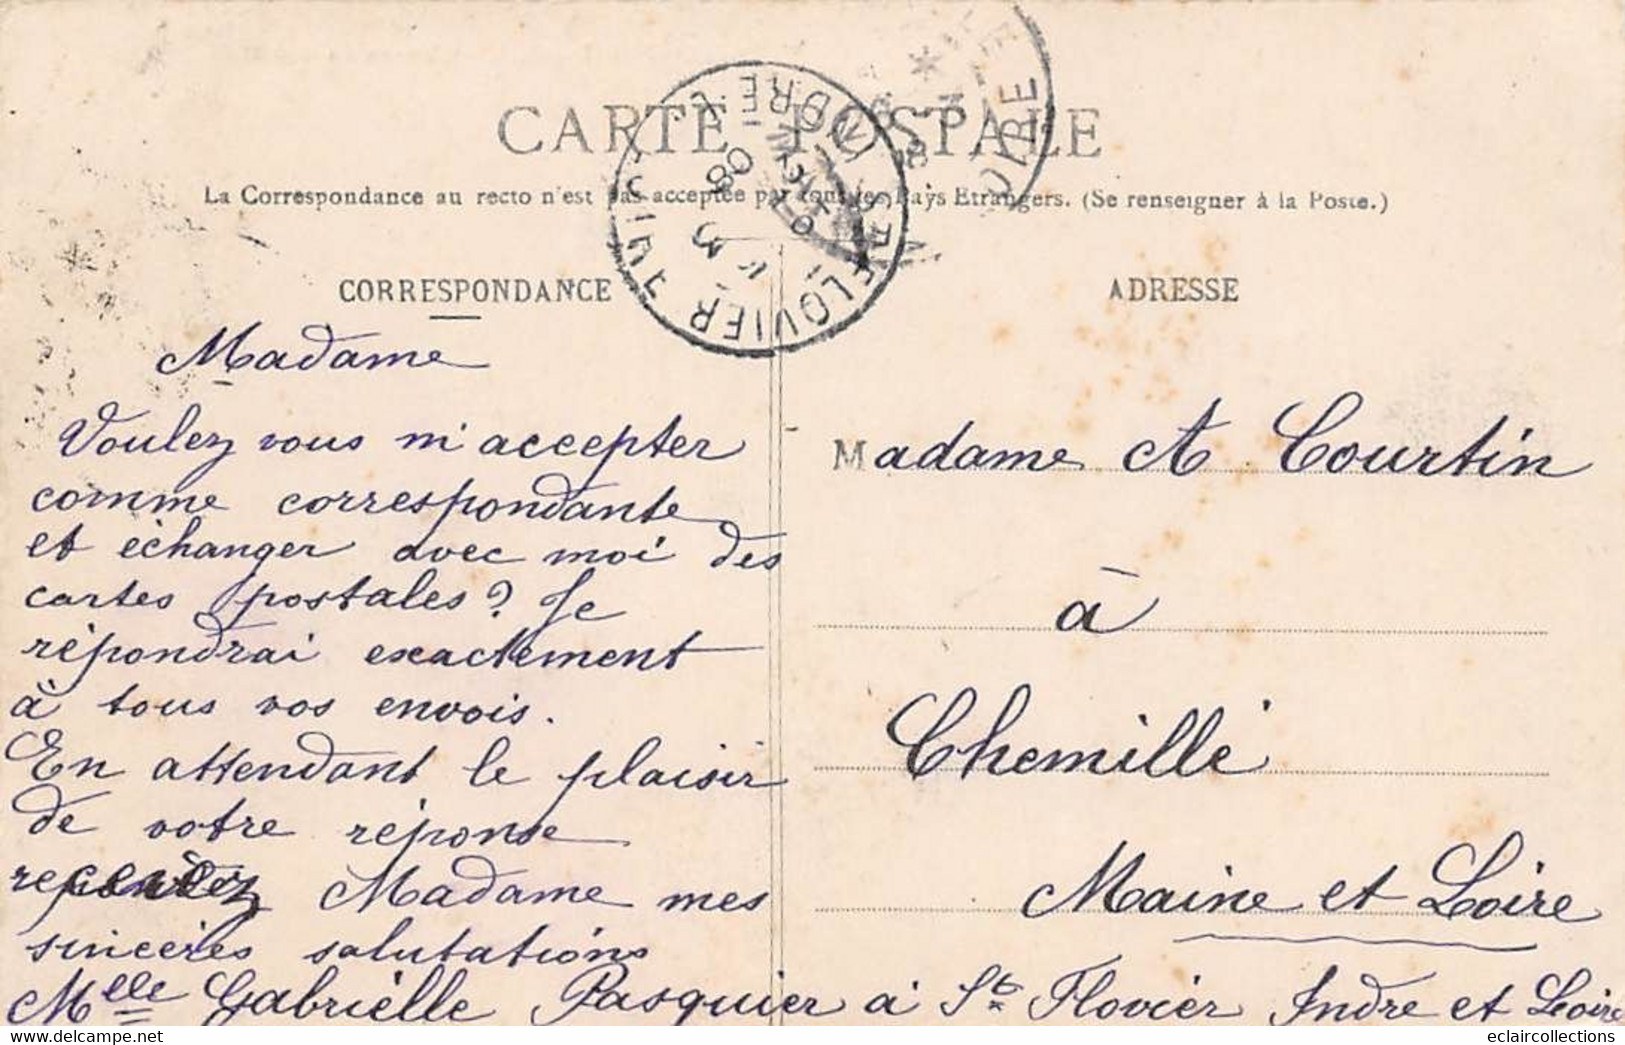 CARTE POSTALE
La Correspondance au recto n'est pas acceptée par tous les Pays Etrangers. (Se renseigner à la Poste.)
CORRESPONDANCE
Madame
Voulez vous m'accepter
comme correspondante
et échanger avec moi des
cartes postales? Je
répondrai exactement
à tous vos envois.
En attendant le plaisir
de votre réponse
Madame mes
sincères salutations
Mlle Gabrielle Pasquier à St Flovier Indre et Loire
ADRESSE
Madame A Courtin
à
Chemillé
Maine et Loire
FLOVIER
INDRE
08
OIRE
delcampe.net
eclaircollections